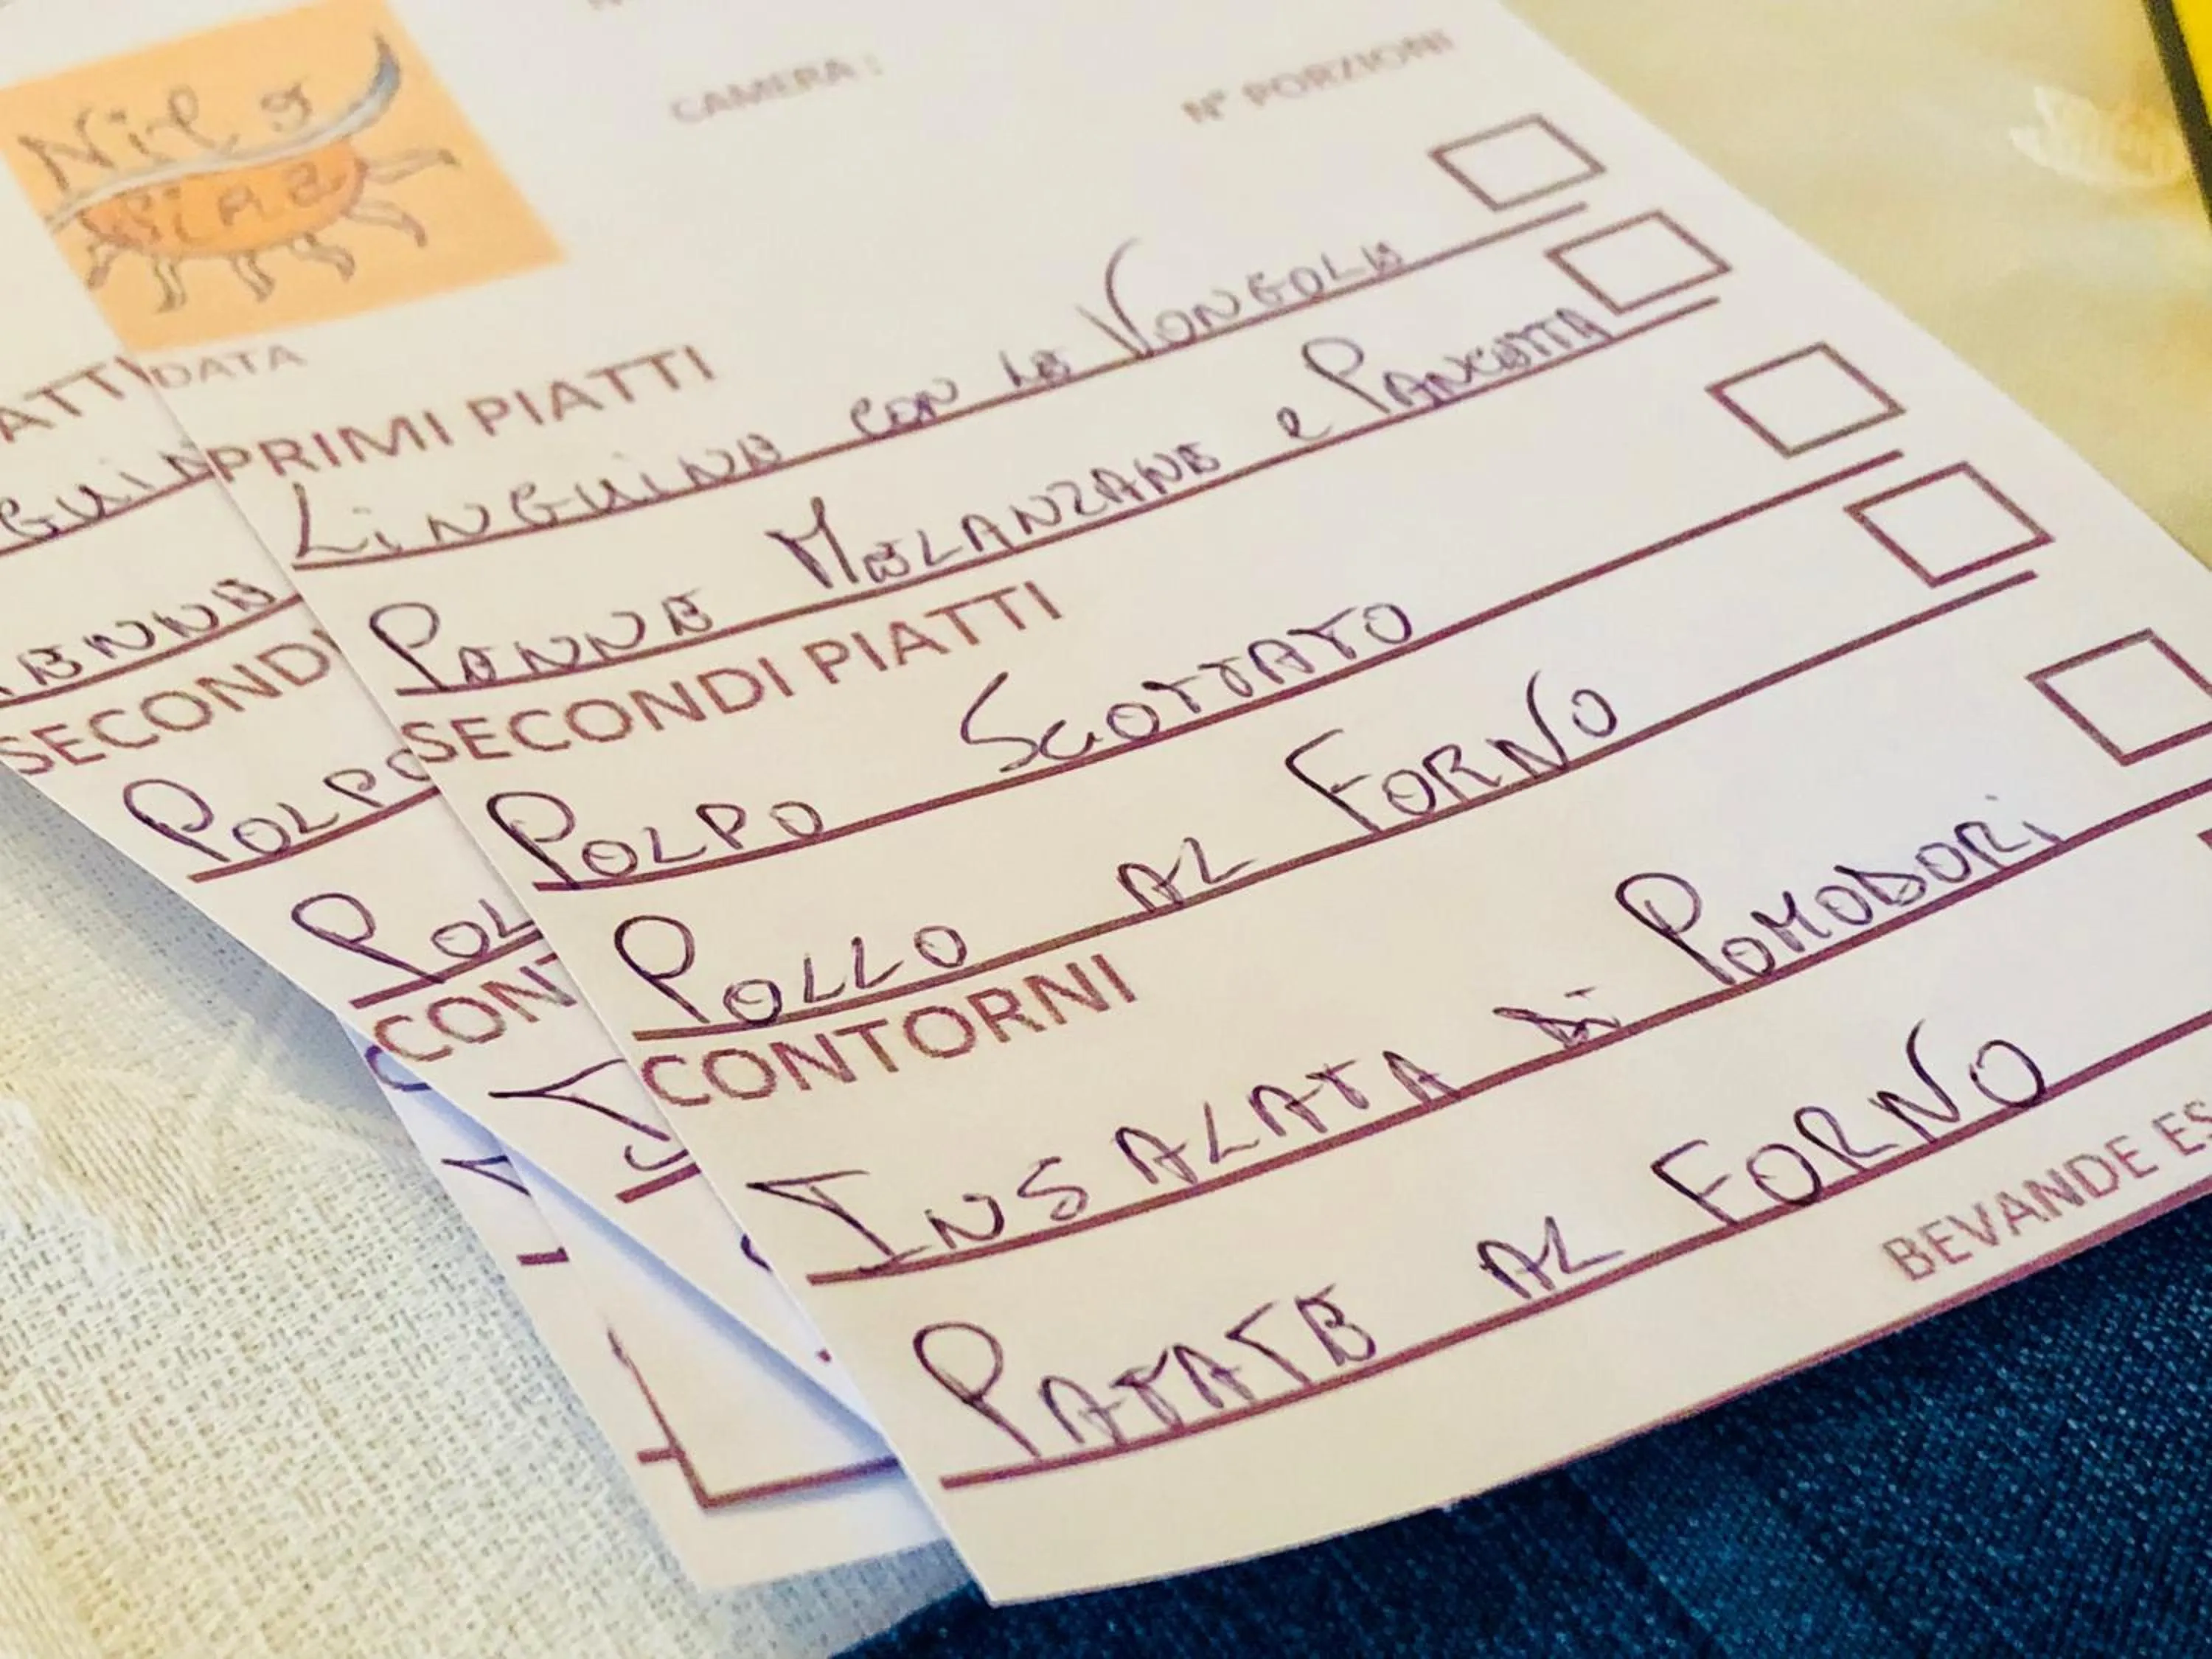 CAMERA :
N° PORZIONI
DATA
PRIMI PIATTI
LINGUINE CON LE VONGOLE
PENNE MELANZANE e PANCETTA
SECONDI PIATTI
POLPO SCOTTATO
POLLO AL FORNO
CONTORNI
INSALATA DI POMODORI
PATATE AL FORNO
BEVANDE ES
ATTI
GUIN
ENNE
SECONDI
POLPO
POL
CONT